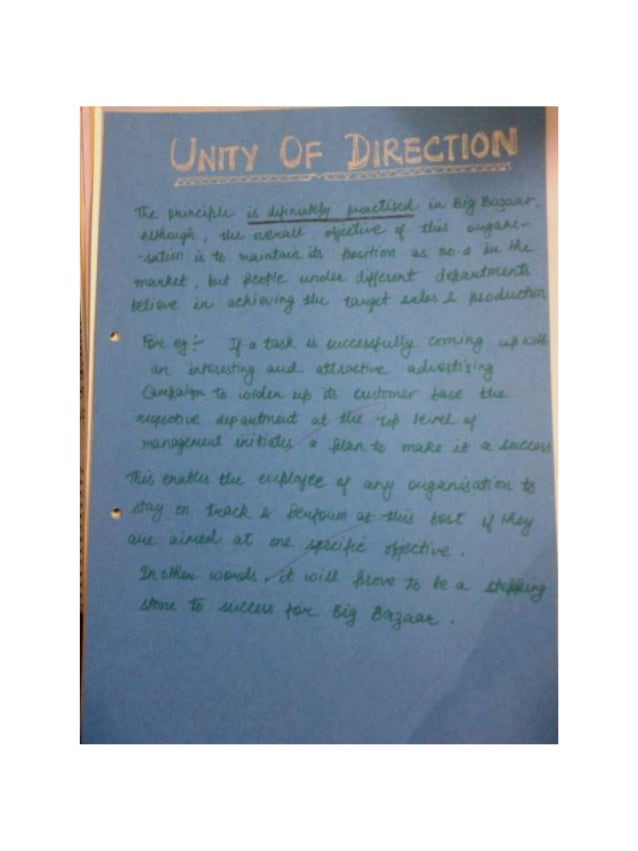 UNITY OF DIRECTION
The principle is definately practised in Big Bazaar.
Although, the overall objective of this organi-
-sation is to maintain its position as no.1 in the
market, but people under different departments
believe in achieving the target sales & production
For eg:- If a task is successfully coming up with
an interesting and attractive advertising
Campaign to widen up its customer base the
respective department at the top level of
management initiates a plan to make it a success
This enables the employee of any organisation to
stay on track & perform at this best if they
are aimed at one specific objective.
In other words, it will prove to be a stepping
stone to success for Big Bazaar.